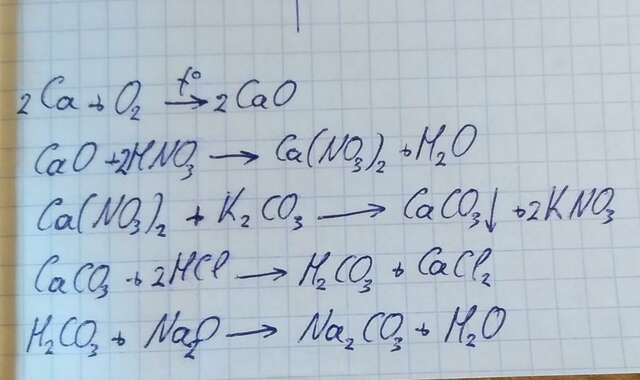 2Ca + O₂ →t° 2CaO
CaO + 2HNO₃ → Ca(NO₃)₂ + H₂O
Ca(NO₃)₂ + K₂CO₃ → CaCO₃↓ + 2KNO₃
CaCO₃ + 2HCl → H₂CO₃ + CaCl₂
H₂CO₃ + Na₂O → Na₂CO₃ + H₂O